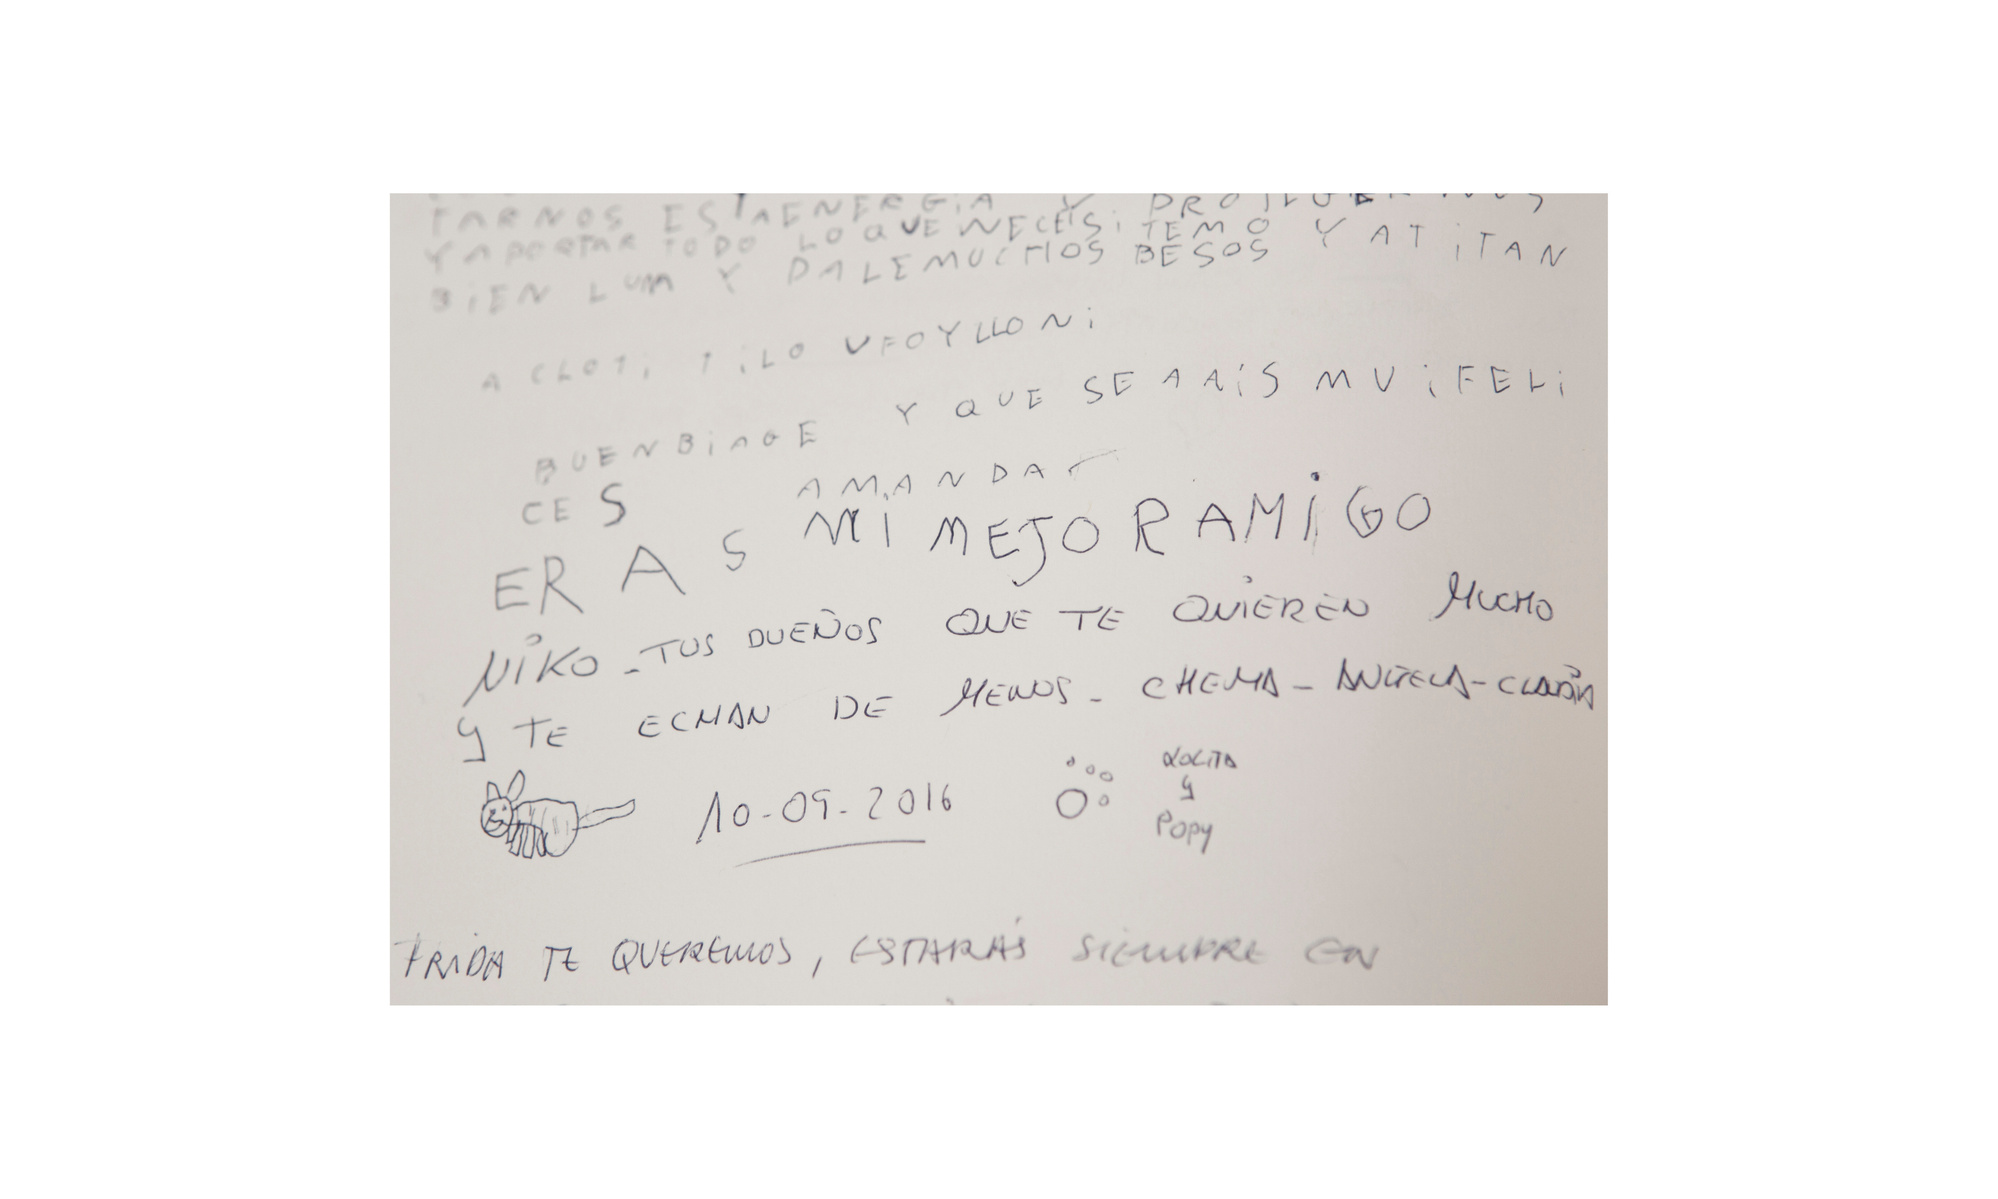 TARNOS ESTAENERGiA Y
Y APORTAR TODO LOQUENECESiTEMO Y ATiTAN
BiEN LUM Y DALEMUCHOS BESOS
A CLOTi
BUENBiAGE Y QUE SEAAiS MUiFELi
CES AMANDA
ERAS Mi MEJORAMiGO
NiKO - TUS DUEÑOS QUE TE QUIEREN MUCHO
Y TE ECHAN DE MENOS - CHEMA - ANGELA -
10-09-2016 LOLITA
Y
POPY
FRIDA TE QUEREMOS, ESTARÁS SIEMPRE EN